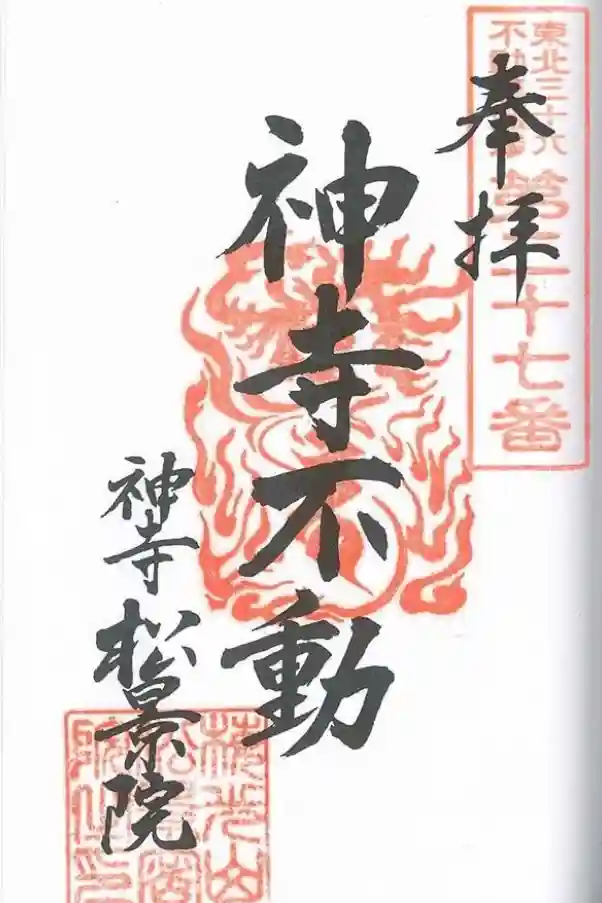 奉拝
東北三十六
不動尊霊場
第二十七番
神寺不動
神寺 松景院